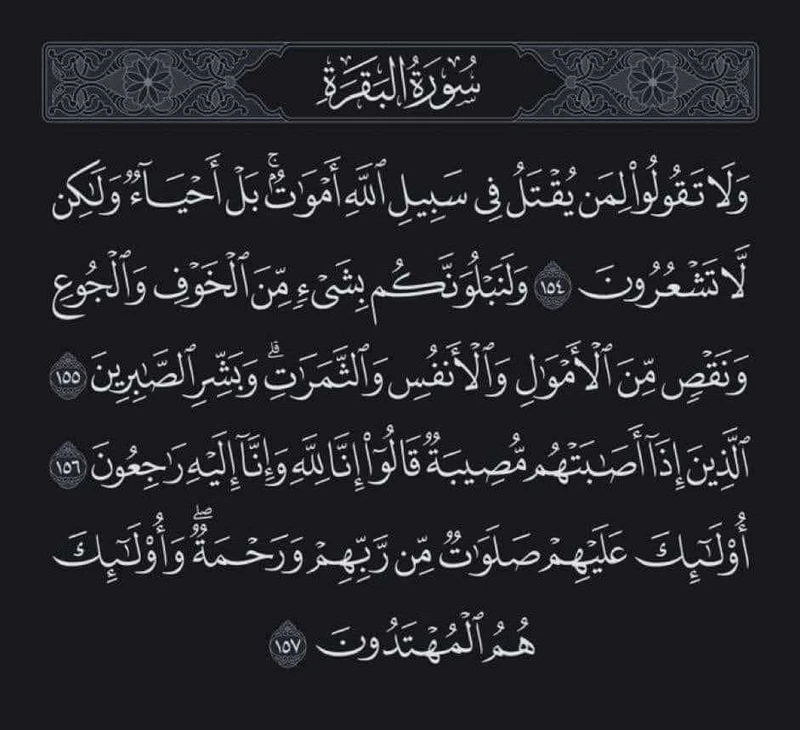 سُورَةُ البَقَرَةِ
وَلَا تَقُولُوا۟ لِمَن يُقْتَلُ فِى سَبِيلِ ٱللَّهِ أَمْوَٰتٌۢ ۚ بَلْ أَحْيَآءٌ وَلَٰكِن
لَّا تَشْعُرُونَ ١٥٤ وَلَنَبْلُوَنَّكُم بِشَىْءٍ مِّنَ ٱلْخَوْفِ وَٱلْجُوعِ
وَنَقْصٍ مِّنَ ٱلْأَمْوَٰلِ وَٱلْأَنفُسِ وَٱلثَّمَرَٰتِ ۗ وَبَشِّرِ ٱلصَّٰبِرِينَ ١٥٥
ٱلَّذِينَ إِذَآ أَصَٰبَتْهُم مُّصِيبَةٌ قَالُوٓا۟ إِنَّا لِلَّهِ وَإِنَّآ إِلَيْهِ رَٰجِعُونَ ١٥٦
أُو۟لَٰٓئِكَ عَلَيْهِمْ صَلَوَٰتٌ مِّن رَّبِّهِمْ وَرَحْمَةٌ ۖ وَأُو۟لَٰٓئِكَ
هُمُ ٱلْمُهْتَدُونَ ١٥٧